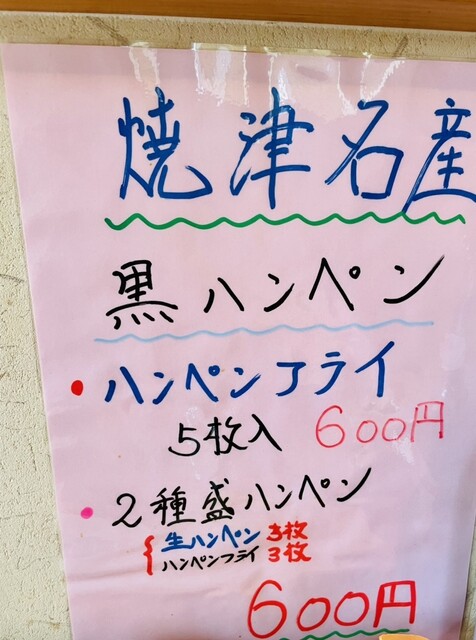 焼津名産
黒ハンペン
・ハンペンフライ
5枚入 600円
・2種盛ハンペン
生ハンペン 3枚
ハンペンフライ 3枚
600円